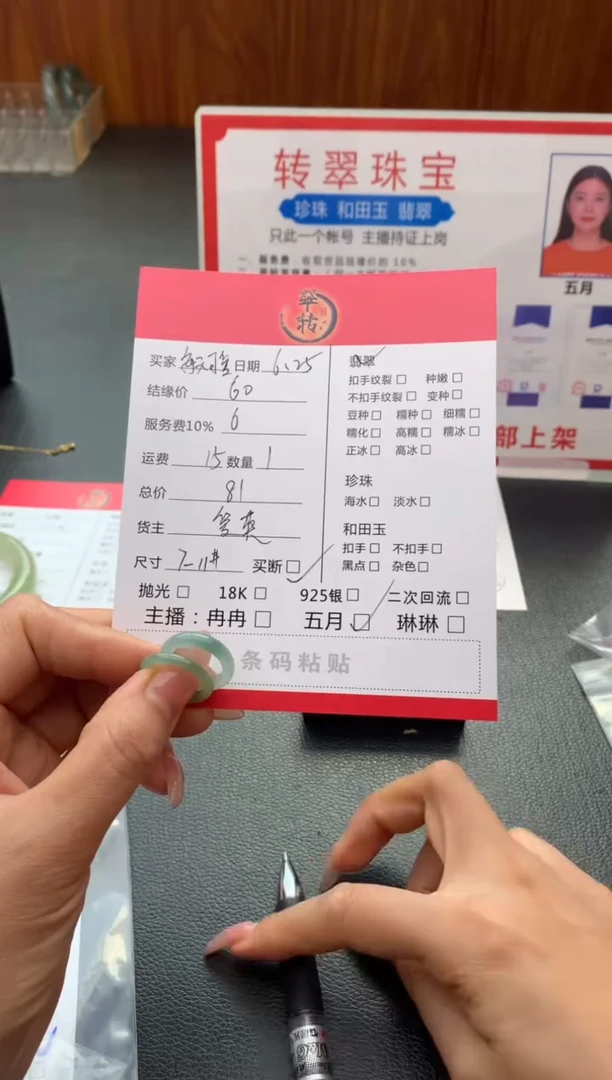 转翠珠宝
珍珠 和田玉 翡翠
只此一个帐号 主播持证上岗
一、服务费：收取货品结缘价的 10%
五月
部上架
翠转
买家 日期 6.25
结缘价 60
服务费10% 6
运费 15 数量 1
总价 81
货主
尺寸 7-11# 买断☐
翡翠
扣手纹裂☐ 种嫩☐
不扣手纹裂☐ 变种☐
豆种☐ 糯种☐ 细糯☐
糯化☐ 高糯☐ 糯冰☐
正冰☐ 高冰☐
珍珠
海水☐ 淡水☐
和田玉
扣手☐ 不扣手☐
黑点☐ 杂色☐
抛光☐ 18K☐ 925银☐ 二次回流☐
主播：冉冉☐ 五月☐ 琳琳☐
条码粘贴